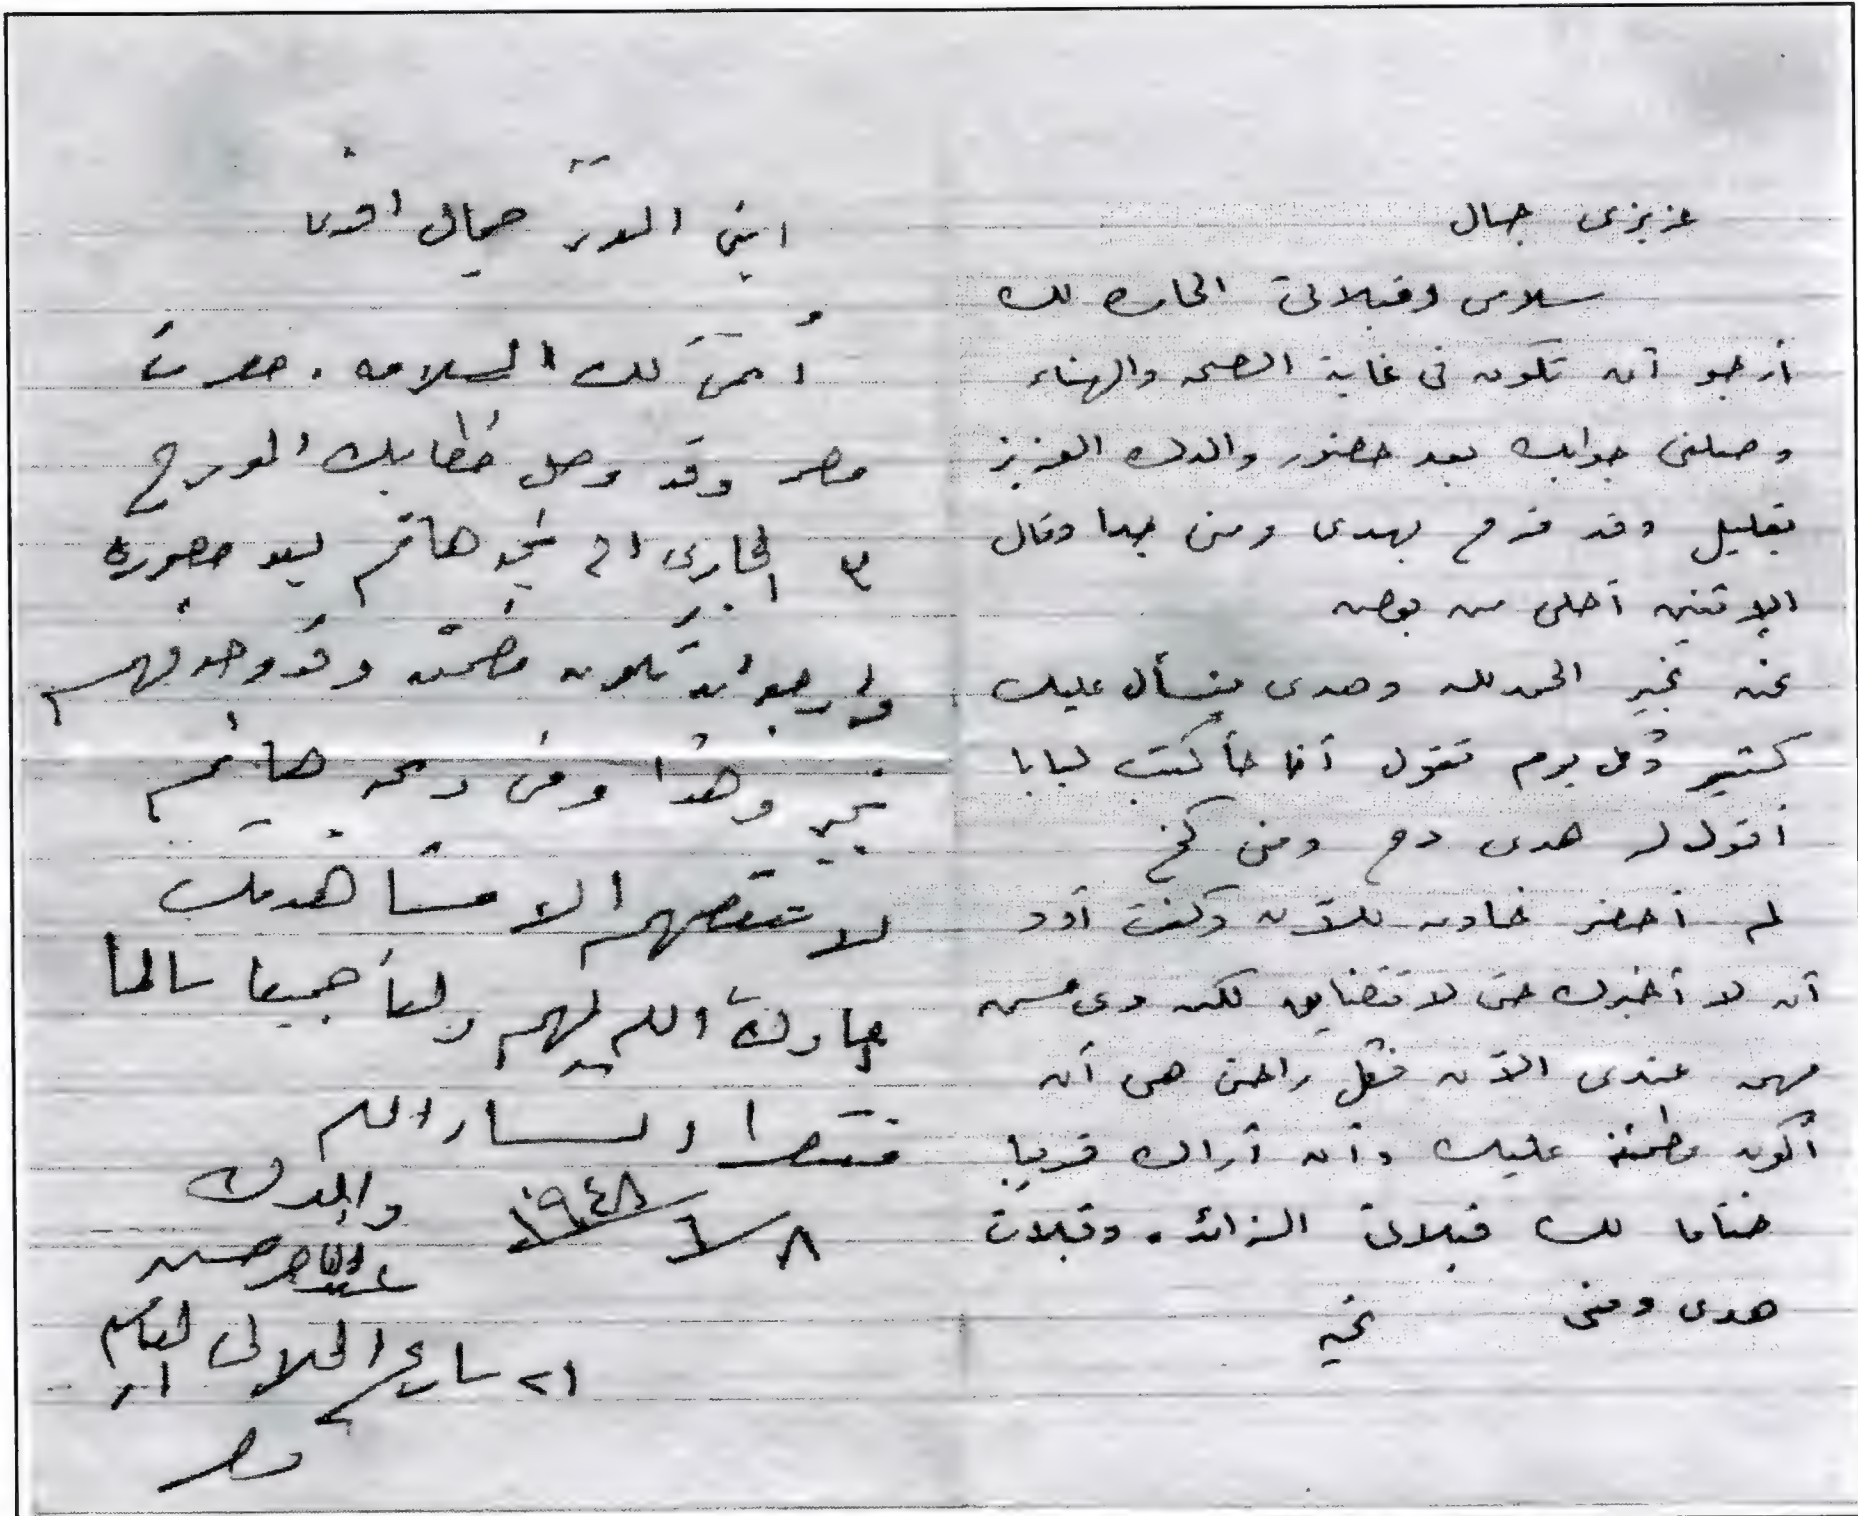 عزيزى جمال
سلامى وقبلاتى الحاره لك
أرجو أن تكون فى غاية الصحه والهناء
وصلنى جوابك بعد حضور والدك العزيز
بقليل وقد فرح بهدى ومنى جدا وقال
الاتنين أحلى من بعض
نحن بخير الحمد لله وهدى بتسأل عليك
كتير وكل يوم تقول أنا حأكتب لبابا
أقول له هدى دح ومنى كخ
لم أحضر خادمه للآن وكنت أود
أن لا أخبرك حتى لا تتضايق لكن دى مش
مهم عندى الآن فكل راحتى هى أن
أكون مطمئنه عليك وأن أراك قريبا
ختاما لك قبلاتى الزائده وقبلات
هدى ومنى تحيه
ابنى العزيز جمال افندى
أتمنى لك السلامه. حضرت
مصر وقد وصل خطابك المورخ
٣ الجارى الى تحيه هانم بعد حضورى
ولرجو ان تكون مطمئن وقد وجدتهم
بخير وهدا ومنى وتحيه هانم
لا ينقصهم الا مشاهدتك
بارك الله لهم ولنا جميعا سالما
منتصرا ان شاء الله
٨/٦/١٩٤٨ والدك
عبد الناصر حسين
٢١ شارع الجلالى
مصر